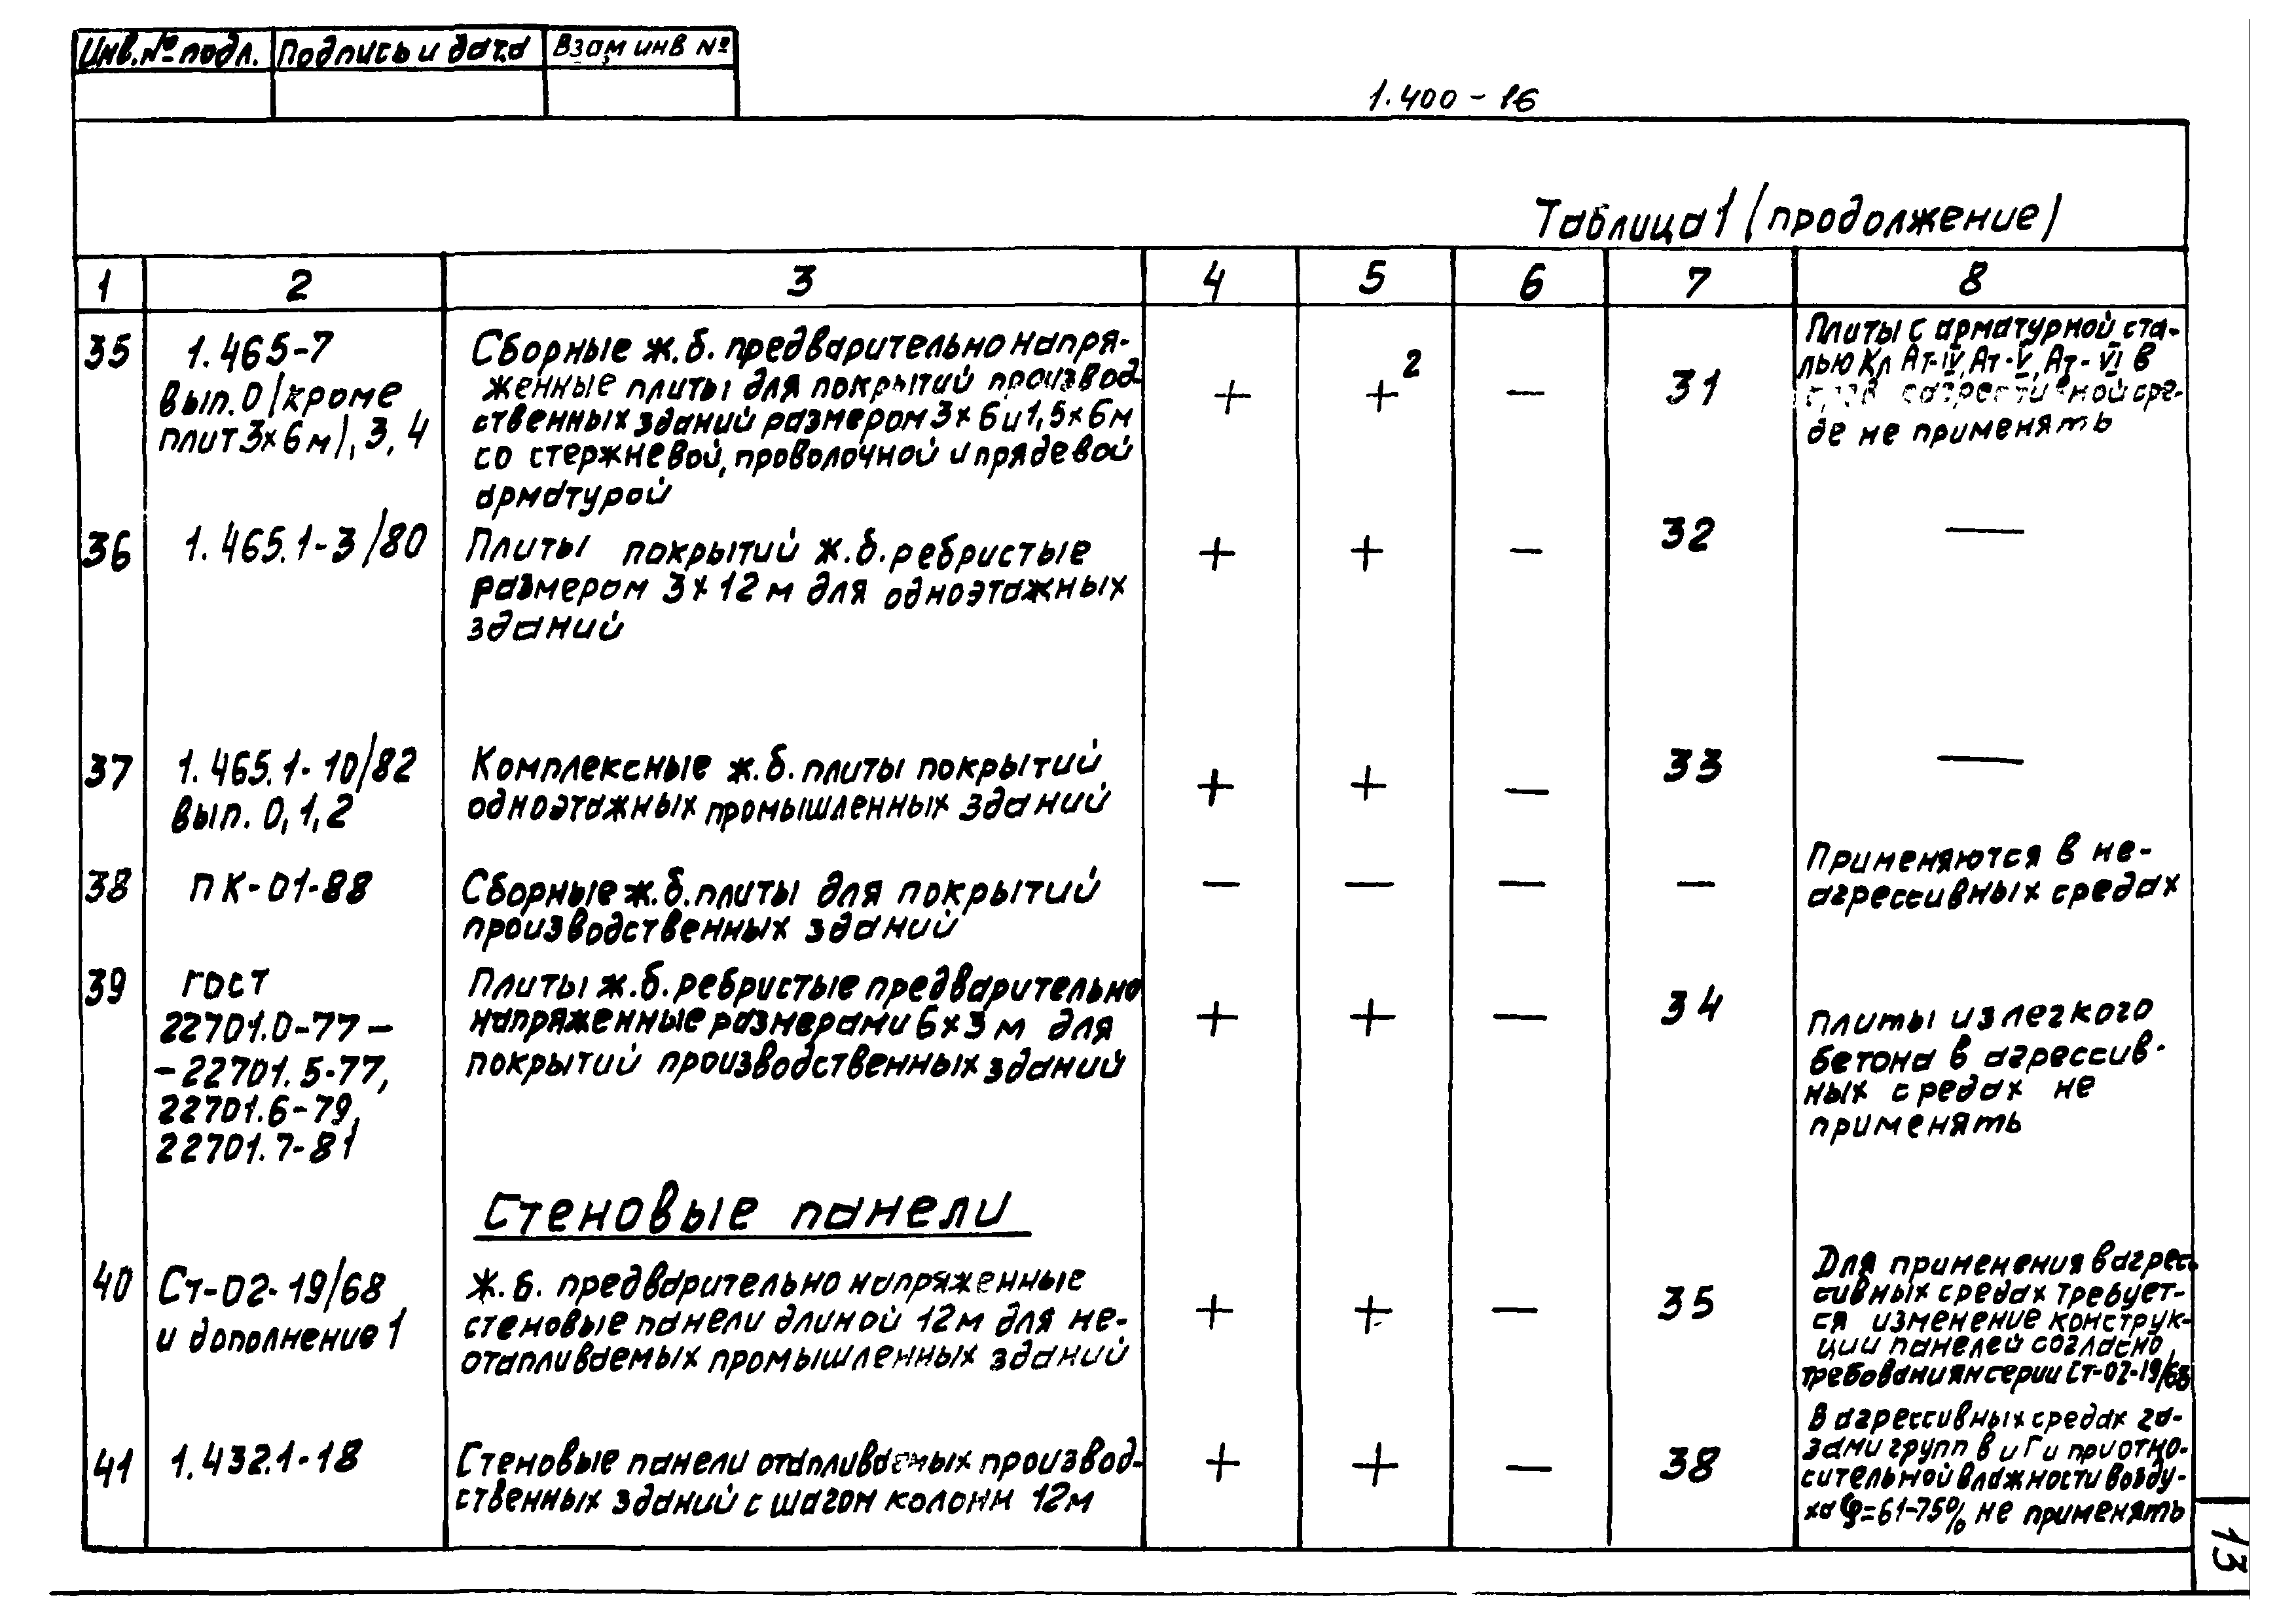 Инв.№ подл. Подпись и дата Взам инв №
1.400-16
Таблица 1 (продолжение)
1 2 3 4 5 6 7 8
35
1.465-7
вып. 0 (кроме
плит 3х6м), 3, 4
Сборные ж.б. предварительно напря-
женные плиты для покрытий производ-
ственных зданий размером 3х6 и 1,5х6м
со стержневой, проволочной и прядевой
арматурой
+ +² — 31
Плиты с арматурной ста-
лью Кл Ат-IV, Ат-V, Ат-VI в
сре-
де не применять
36
1.465.1-3/80
Плиты покрытий ж.б. ребристые
размером 3х12м для одноэтажных
зданий
+ + — 32 —
37
1.465.1-10/82
вып. 0, 1, 2
Комплексные ж.б. плиты покрытий
одноэтажных промышленных зданий
+ + — 33 —
38
ПК-01-88
Сборные ж.б. плиты для покрытий
производственных зданий
— — — —
Применяются в не-
агрессивных средах
39
ГОСТ
22701.0-77 —
-22701.5-77,
22701.6-79,
22701.7-81
Плиты ж.б. ребристые предварительно
напряженные размерами 6х3м для
покрытий производственных зданий
+ + — 34
Плиты из легкого
бетона в агрессив-
ных средах не
применять
Стеновые панели
40
Ст-02-19/68
и дополнение 1
Ж.б. предварительно напряженные
стеновые панели длиной 12м для не-
отапливаемых промышленных зданий
+ + — 35
Для применения в агрес-
сивных средах требует-
ся изменение конструк-
ции панелей согласно
требованиям серии Ст-02-19/68
41
1.432.1-18
Стеновые панели отапливаемых производ-
ственных зданий с шагом колонн 12м
+ + — 38
В агрессивных средах га-
зами групп В и Г и при отно-
сительной влажности возду-
ха φ=61-75% не применять
13